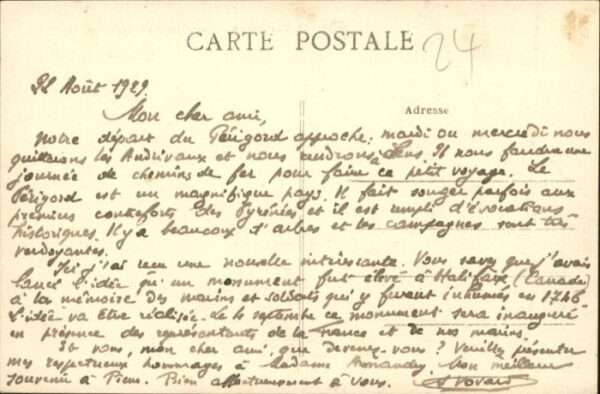 CARTE POSTALE
24
22 Août 1929
Adresse
Mon cher ami,
Notre départ du Périgord approche : mardi ou mercredi nous
quitterons les Andrivaux et nous rendrons à Sens. Il nous faudra une
journée de chemins de fer pour faire ce petit voyage. Le
Périgord est un magnifique pays. Il fait songer parfois aux
premiers contreforts des Pyrénées et il est empli d'évocations
historiques. Il y a beaucoup d'arbres et les campagnes sont très
verdoyantes.
Ici j'ai reçu une nouvelle intéressante. Vous savez que j'avais
lancé l'idée qu'un monument fut élevé à Halifaxe (Canada)
à la mémoire des marins et soldats qui y furent inhumés en 1746
L'idée va être réalisée. Le septembre ce monument sera inauguré
en présence des représentants de la France et de nos marins.
Et vous, mon cher ami, que devenez-vous ? Veuillez présenter
mes respectueux hommages à Madame Mon meilleur
souvenir à Pierre. Bien affectueusement à vous.